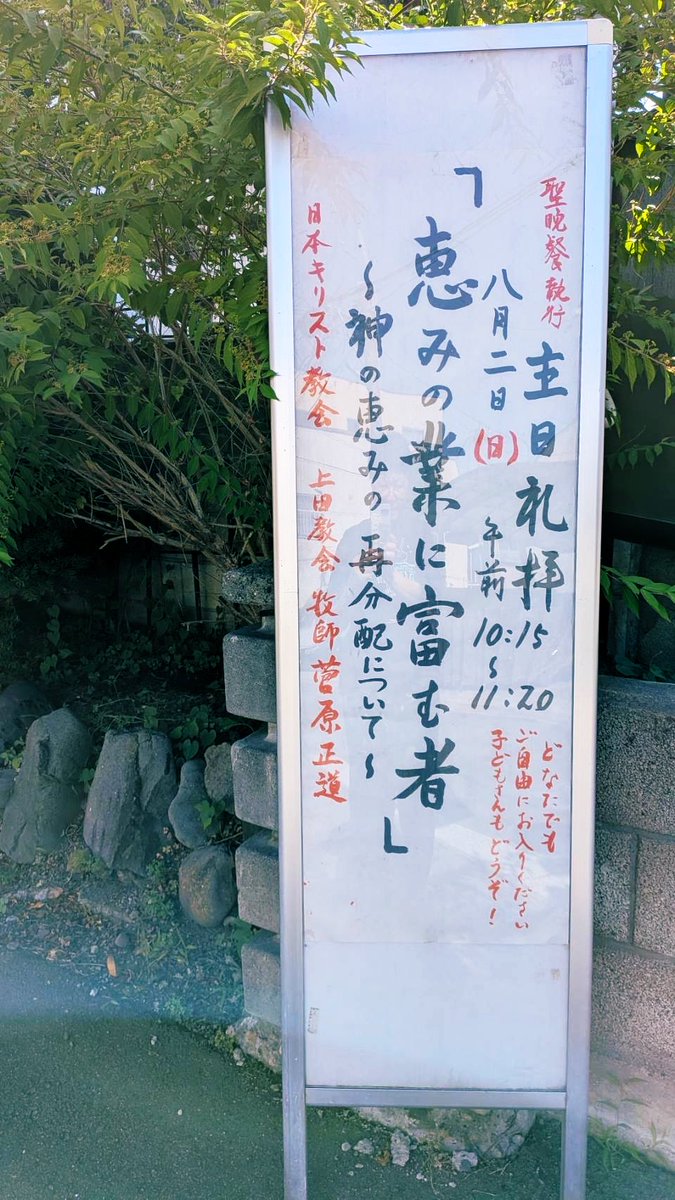 聖晩餐執行
主日礼拝
八月二日(日)
午前10:15～11:20
どなたでも
ご自由にお入りください
子どもさんもどうぞ!
「恵みの業に富む者」
～神の恵みの再分配について～
日本キリスト教会 上田教会 牧師 菅原正道